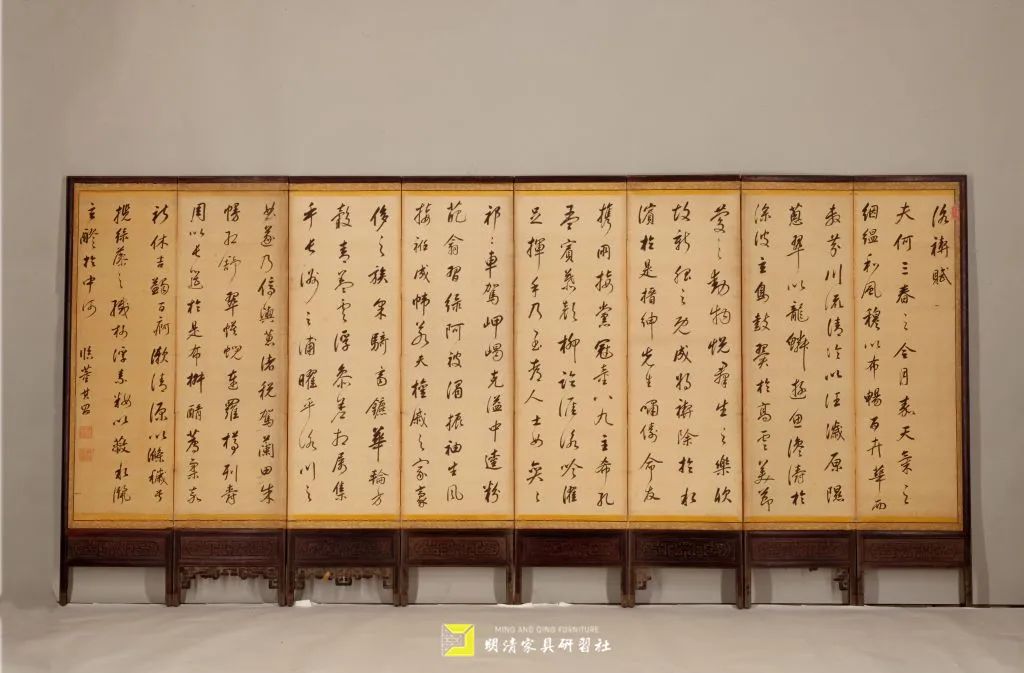 洛禊賦
夫何三春之令月嘉天氣之
絪縕和風穆以布暢百卉華而
敷芬川流清泠以汪濊原隰
蔥翠以龍鱗游魚瀺於
淥波玄鳥鼓翼於高雲美節
慶之動物悅群生之樂欣
故新服之既成將禊除於水
濱於是搢紳先生嘯儔命友
攜朋接黨冠童八九主希孔
墨賓慕顏柳臨涯詠吟濯
足揮手乃至都人士女奕々
祁々車駕岬嵑充溢中逵粉
葩翕習緣阿被湄振袖生風
接衽成幃若夫權戚之家豪
侈之族采騎齊鑣華輪方
轂青蓋雲浮參差相屬集
乎長洲之浦曜乎洛川之
曲遂乃停輿蕙渚稅駕蘭田朱
幔虹舒翠幕蜺連羅樽列爵
周以長筵於是布椒醑薦柔嘉
祈休吉蠲百痾漱清源以滌穢兮
攬綠藻之纖柯浮素妝以蔽水灑
玄醪於中河 臨董其昌
MING AND QING FORNITURE
明清家具研習社